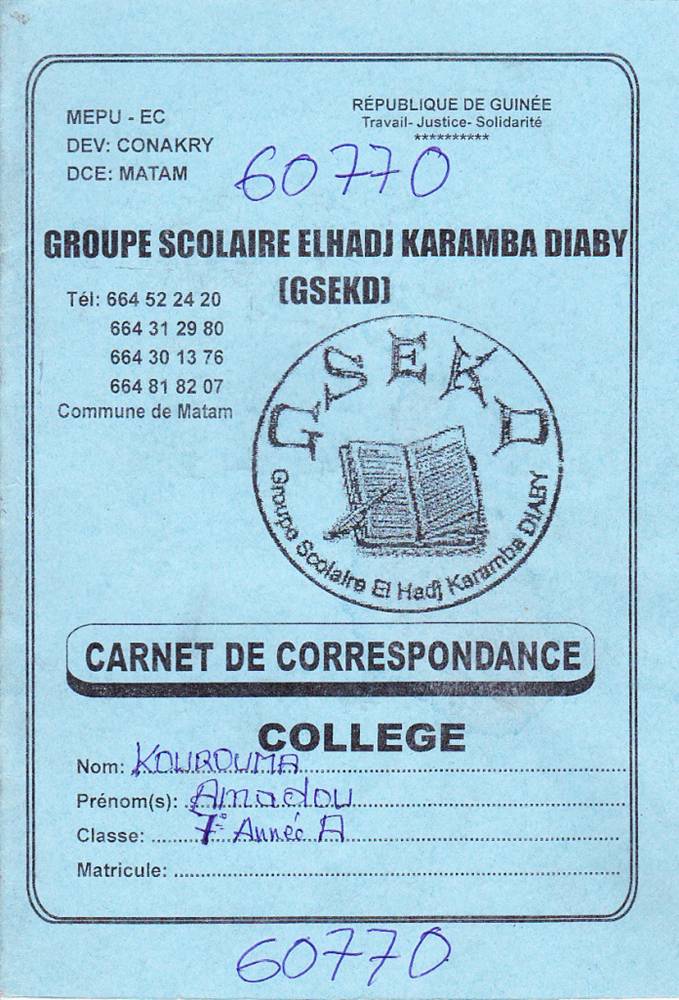 MEPU - EC
DEV: CONAKRY
DCE: MATAM
RÉPUBLIQUE DE GUINÉE
Travail- Justice- Solidarité
**********
60770
GROUPE SCOLAIRE ELHADJ KARAMBA DIABY
(GSEKD)
Tél: 664 52 24 20
664 31 29 80
664 30 13 76
664 81 82 07
Commune de Matam
GSEKD
Groupe Scolaire El Hadj Karamba DIABY
CARNET DE CORRESPONDANCE
COLLEGE
Nom: KOUROUMA
Prénom(s): Amadou
Classe: 7e Année A
Matricule:
60770